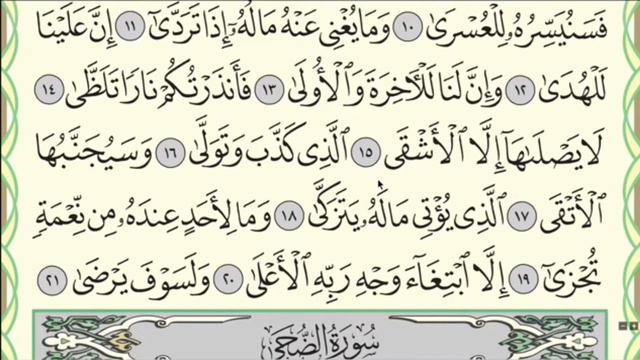 فَسَنُيَسِّرُهُۥ لِلْعُسْرَىٰ ١٠ وَمَا يُغْنِى عَنْهُ مَالُهُۥٓ إِذَا تَرَدَّىٰٓ ١١ إِنَّ عَلَيْنَا
لَلْهُدَىٰ ١٢ وَإِنَّ لَنَا لَلْـَٔاخِرَةَ وَٱلْأُولَىٰ ١٣ فَأَنذَرْتُكُمْ نَارًا تَلَظَّىٰ ١٤
لَا يَصْلَىٰهَآ إِلَّا ٱلْأَشْقَى ١٥ ٱلَّذِى كَذَّبَ وَتَوَلَّىٰ ١٦ وَسَيُجَنَّبُهَا
ٱلْأَتْقَى ١٧ ٱلَّذِى يُؤْتِى مَالَهُۥ يَتَزَكَّىٰ ١٨ وَمَا لِأَحَدٍ عِندَهُۥ مِن نِّعْمَةٍ
تُجْزَىٰٓ ١٩ إِلَّا ٱبْتِغَآءَ وَجْهِ رَبِّهِ ٱلْأَعْلَىٰ ٢٠ وَلَسَوْفَ يَرْضَىٰ ٢١
سُورَةُ الضُّحَى